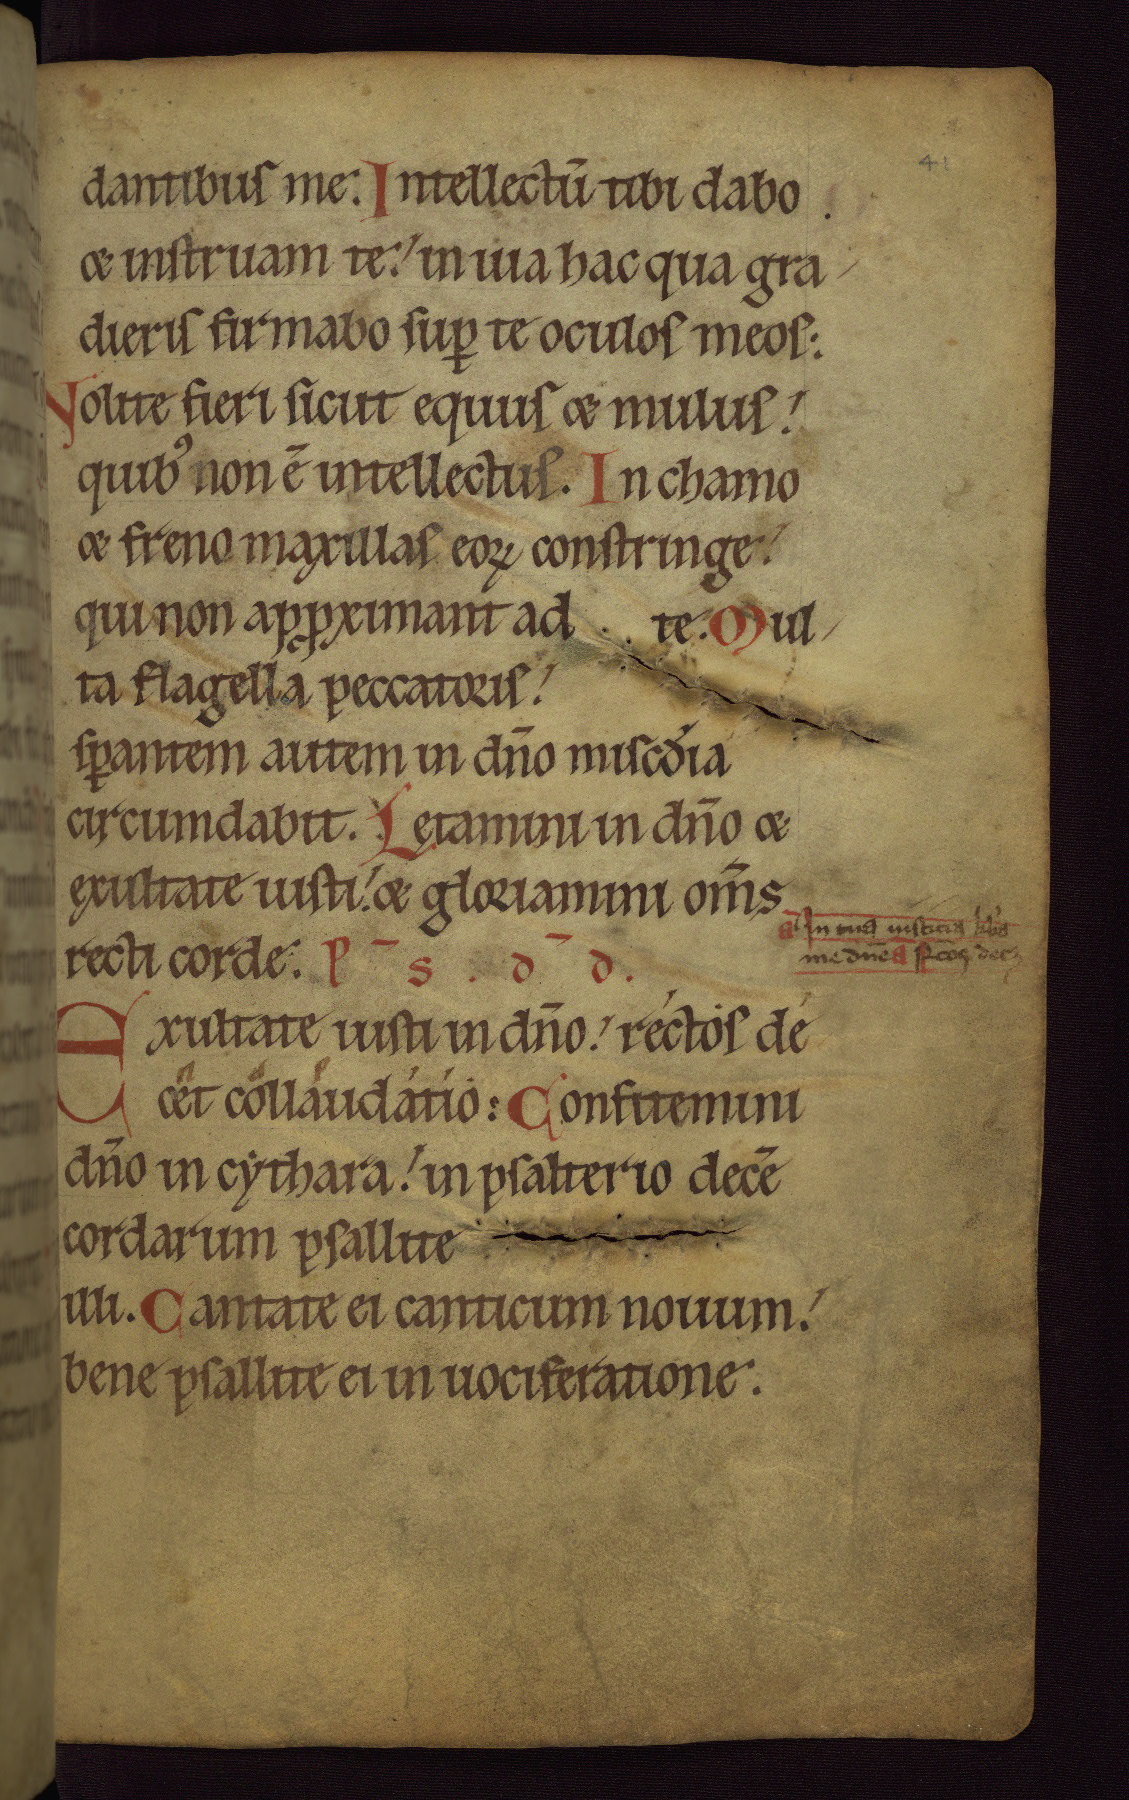 41
dantibus me. Intellectū tibi dabo
& instruam te. in uia hac qua gra
dieris firmabo suꝑ te oculos meos:
Nolite fieri sicut equus & mulus!
quibꝰ non ē intellectus. In chamo
& freno maxillas eoꝝ constringe!
qui non apꝓximant ad te. Mul
ta flagella peccatoris!
sꝑantem autem in dn̄o misc̄dia
circumdabit. Letamini in dn̄o &
exultate iusti! & gloriamini om̄s
recti corde. P ̄ s . d ̄ d.
a In tua iusticia lib̄a
me dn̄e
Exultate iusti in dn̄o! rectos de
cet collaudatio: Confitemini
dn̄o in cythara! in psalterio decē
cordarum psallite
illi. Cantate ei canticum nouum!
bene psallite ei in uociferatione.